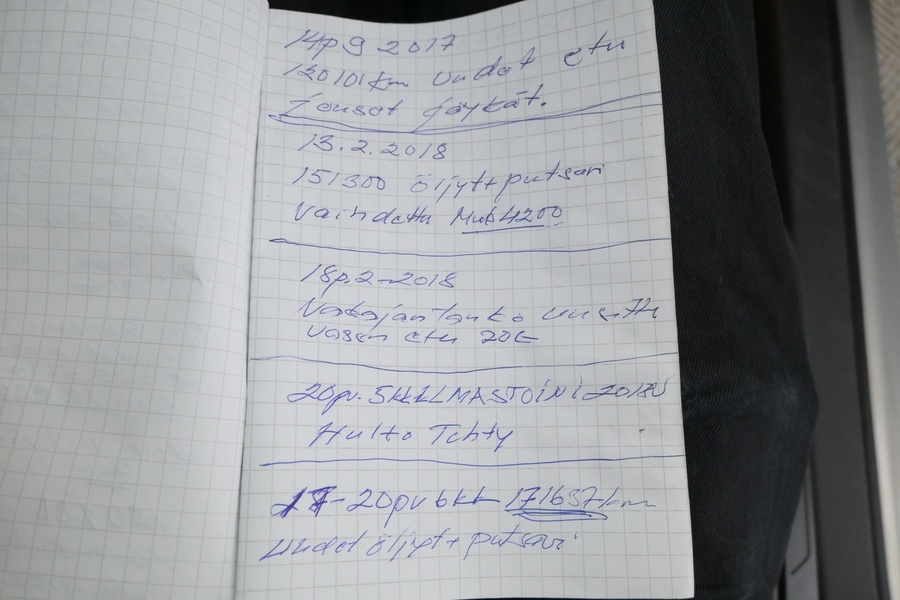 14p 9 2017
120101km uudet etu
jouset jäykät.
13.2.2018
151300 öljyt+putsari
Vaihdettu 4200
18p.2-2018
vasen etu 20€
20pv.5kk ILMASTOINI 2018V
Hulto Tehty
17-20pv 6kk 171637km
uudet öljyt+putsari